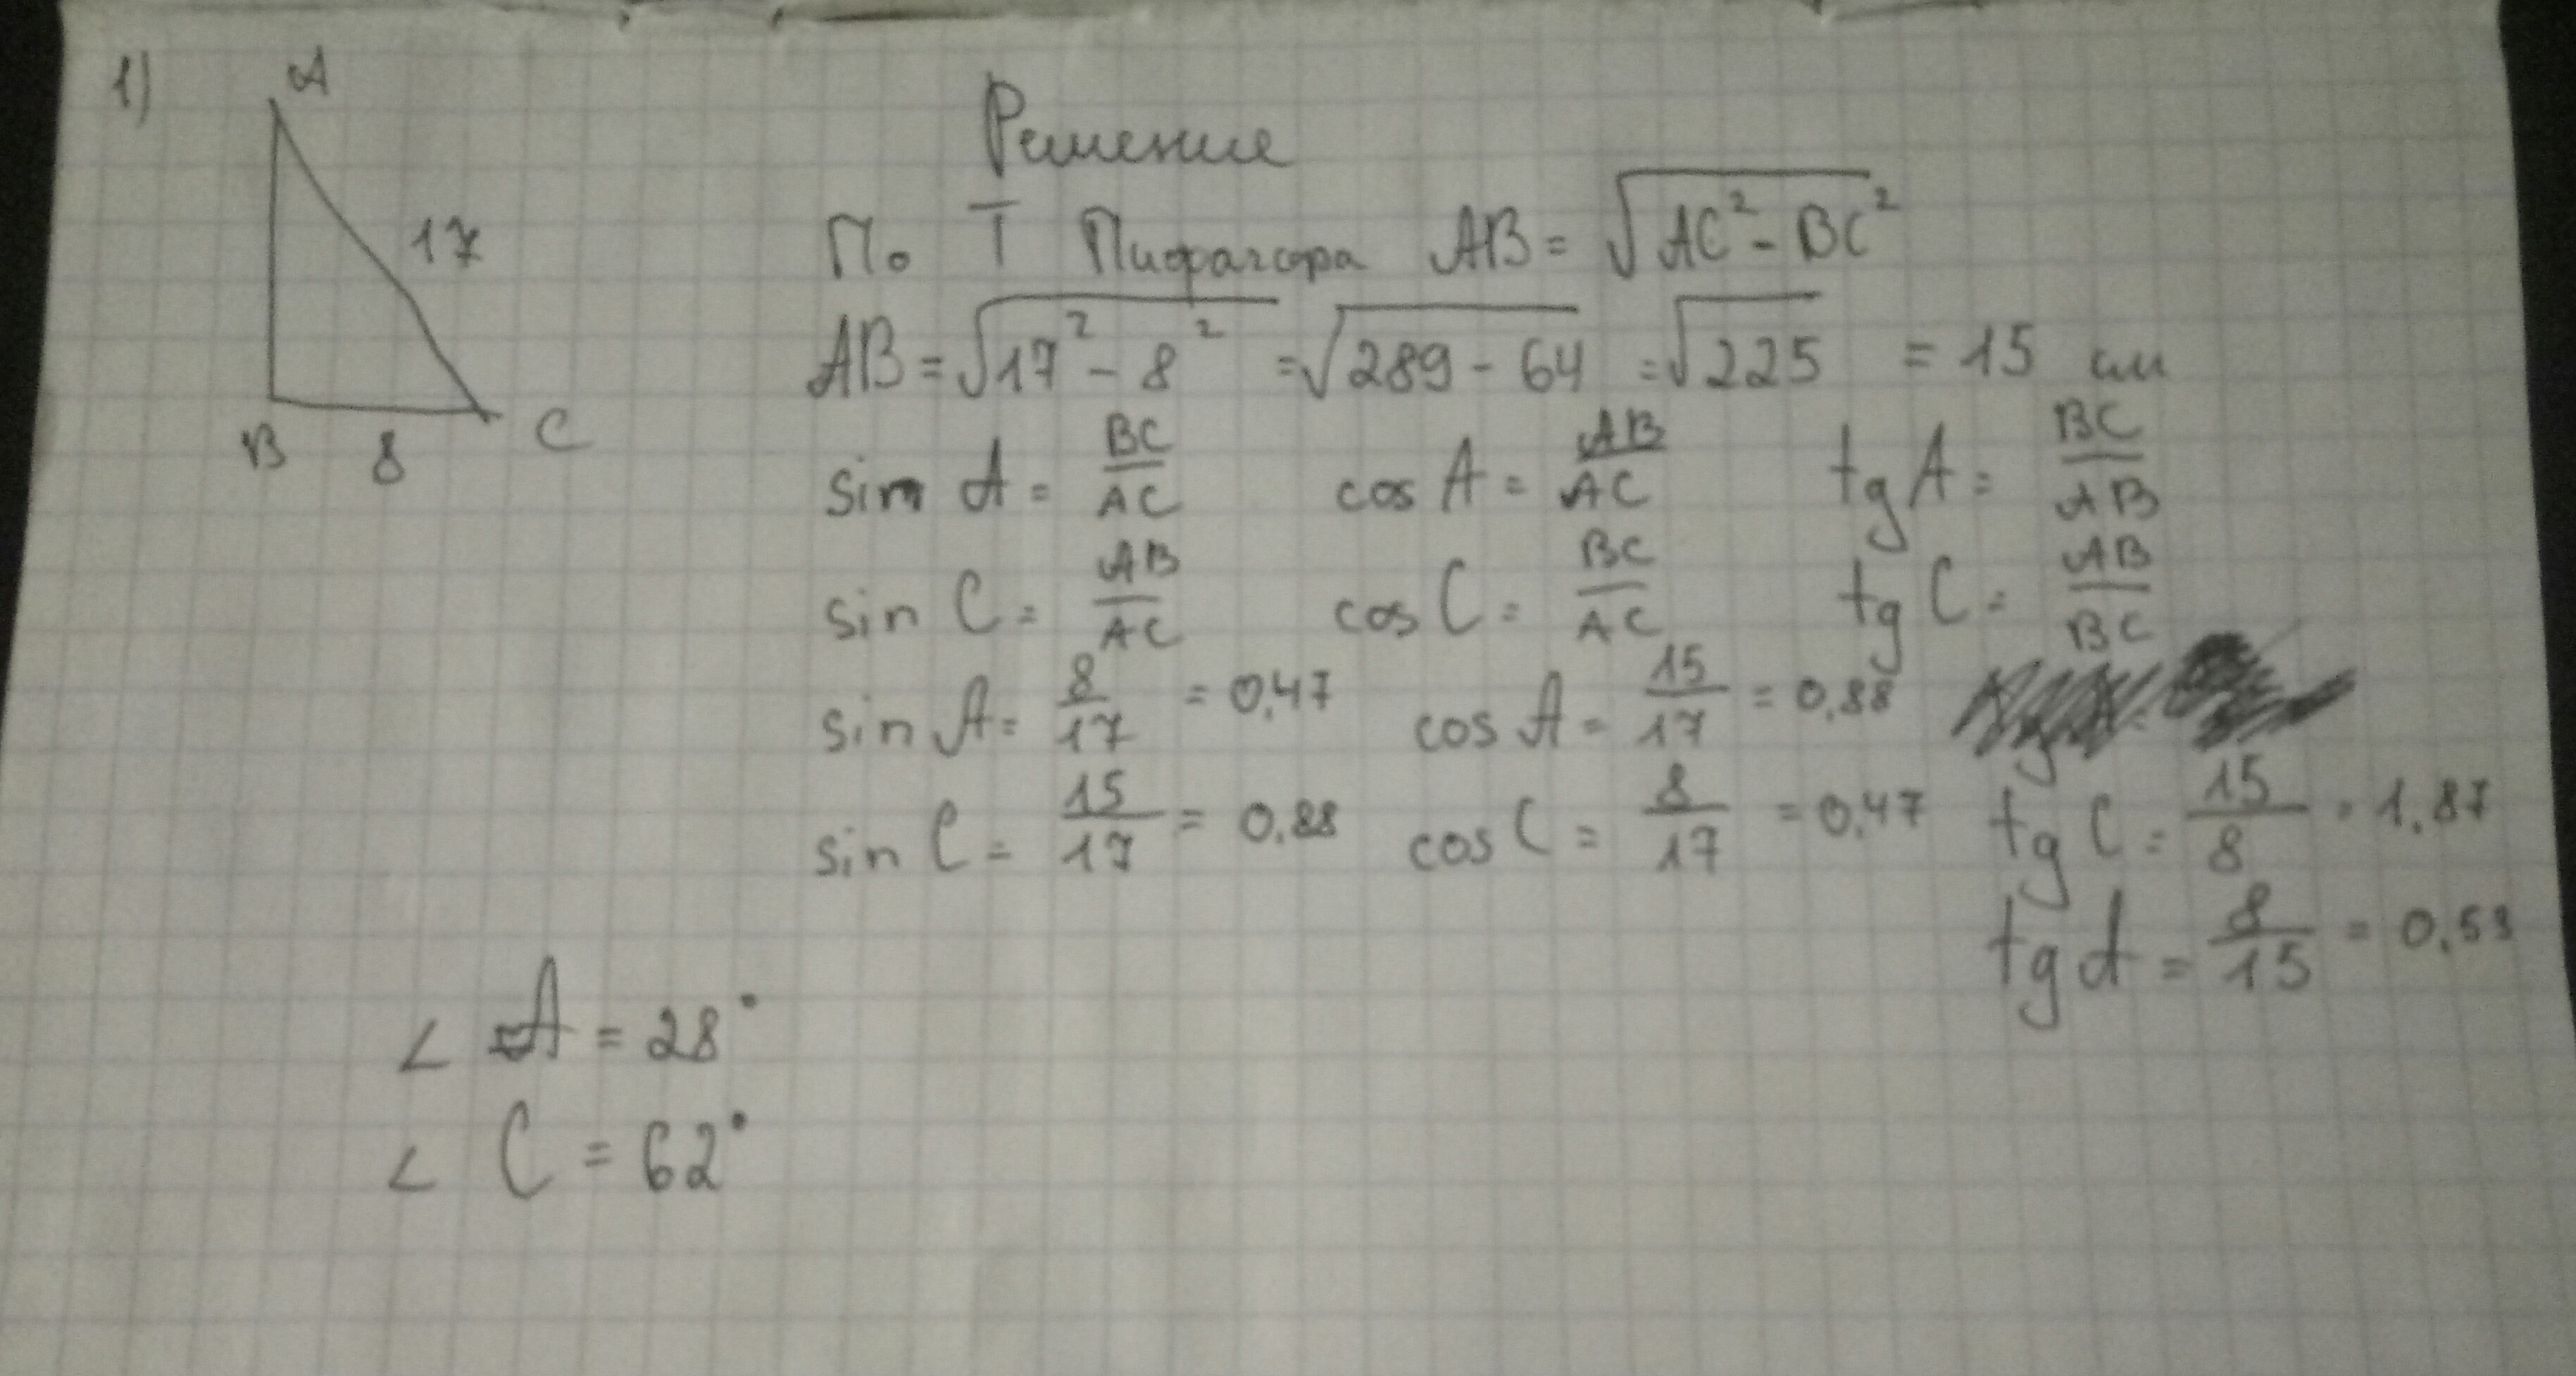 1)
A
17
B 8 C
Решение
По Т Пифагора AB = √AC² - BC²
AB = √17² - 8² = √289 - 64 = √225 = 15 см
sin A = BC/AC cos A = AB/AC tg A = BC/AB
sin C = AB/AC cos C = BC/AC tg C = AB/BC
sin A = 8/17 = 0,47 cos A = 15/17 = 0,88
sin C = 15/17 = 0,88 cos C = 8/17 = 0,47 tg C = 15/8 = 1,87
tg A = 8/15 = 0,53
∠ A = 28°
∠ C = 62°